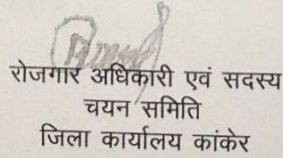 रोजगार अधिकारी एवं सदस्य
चयन समिति
जिला कार्यालय कांकेर